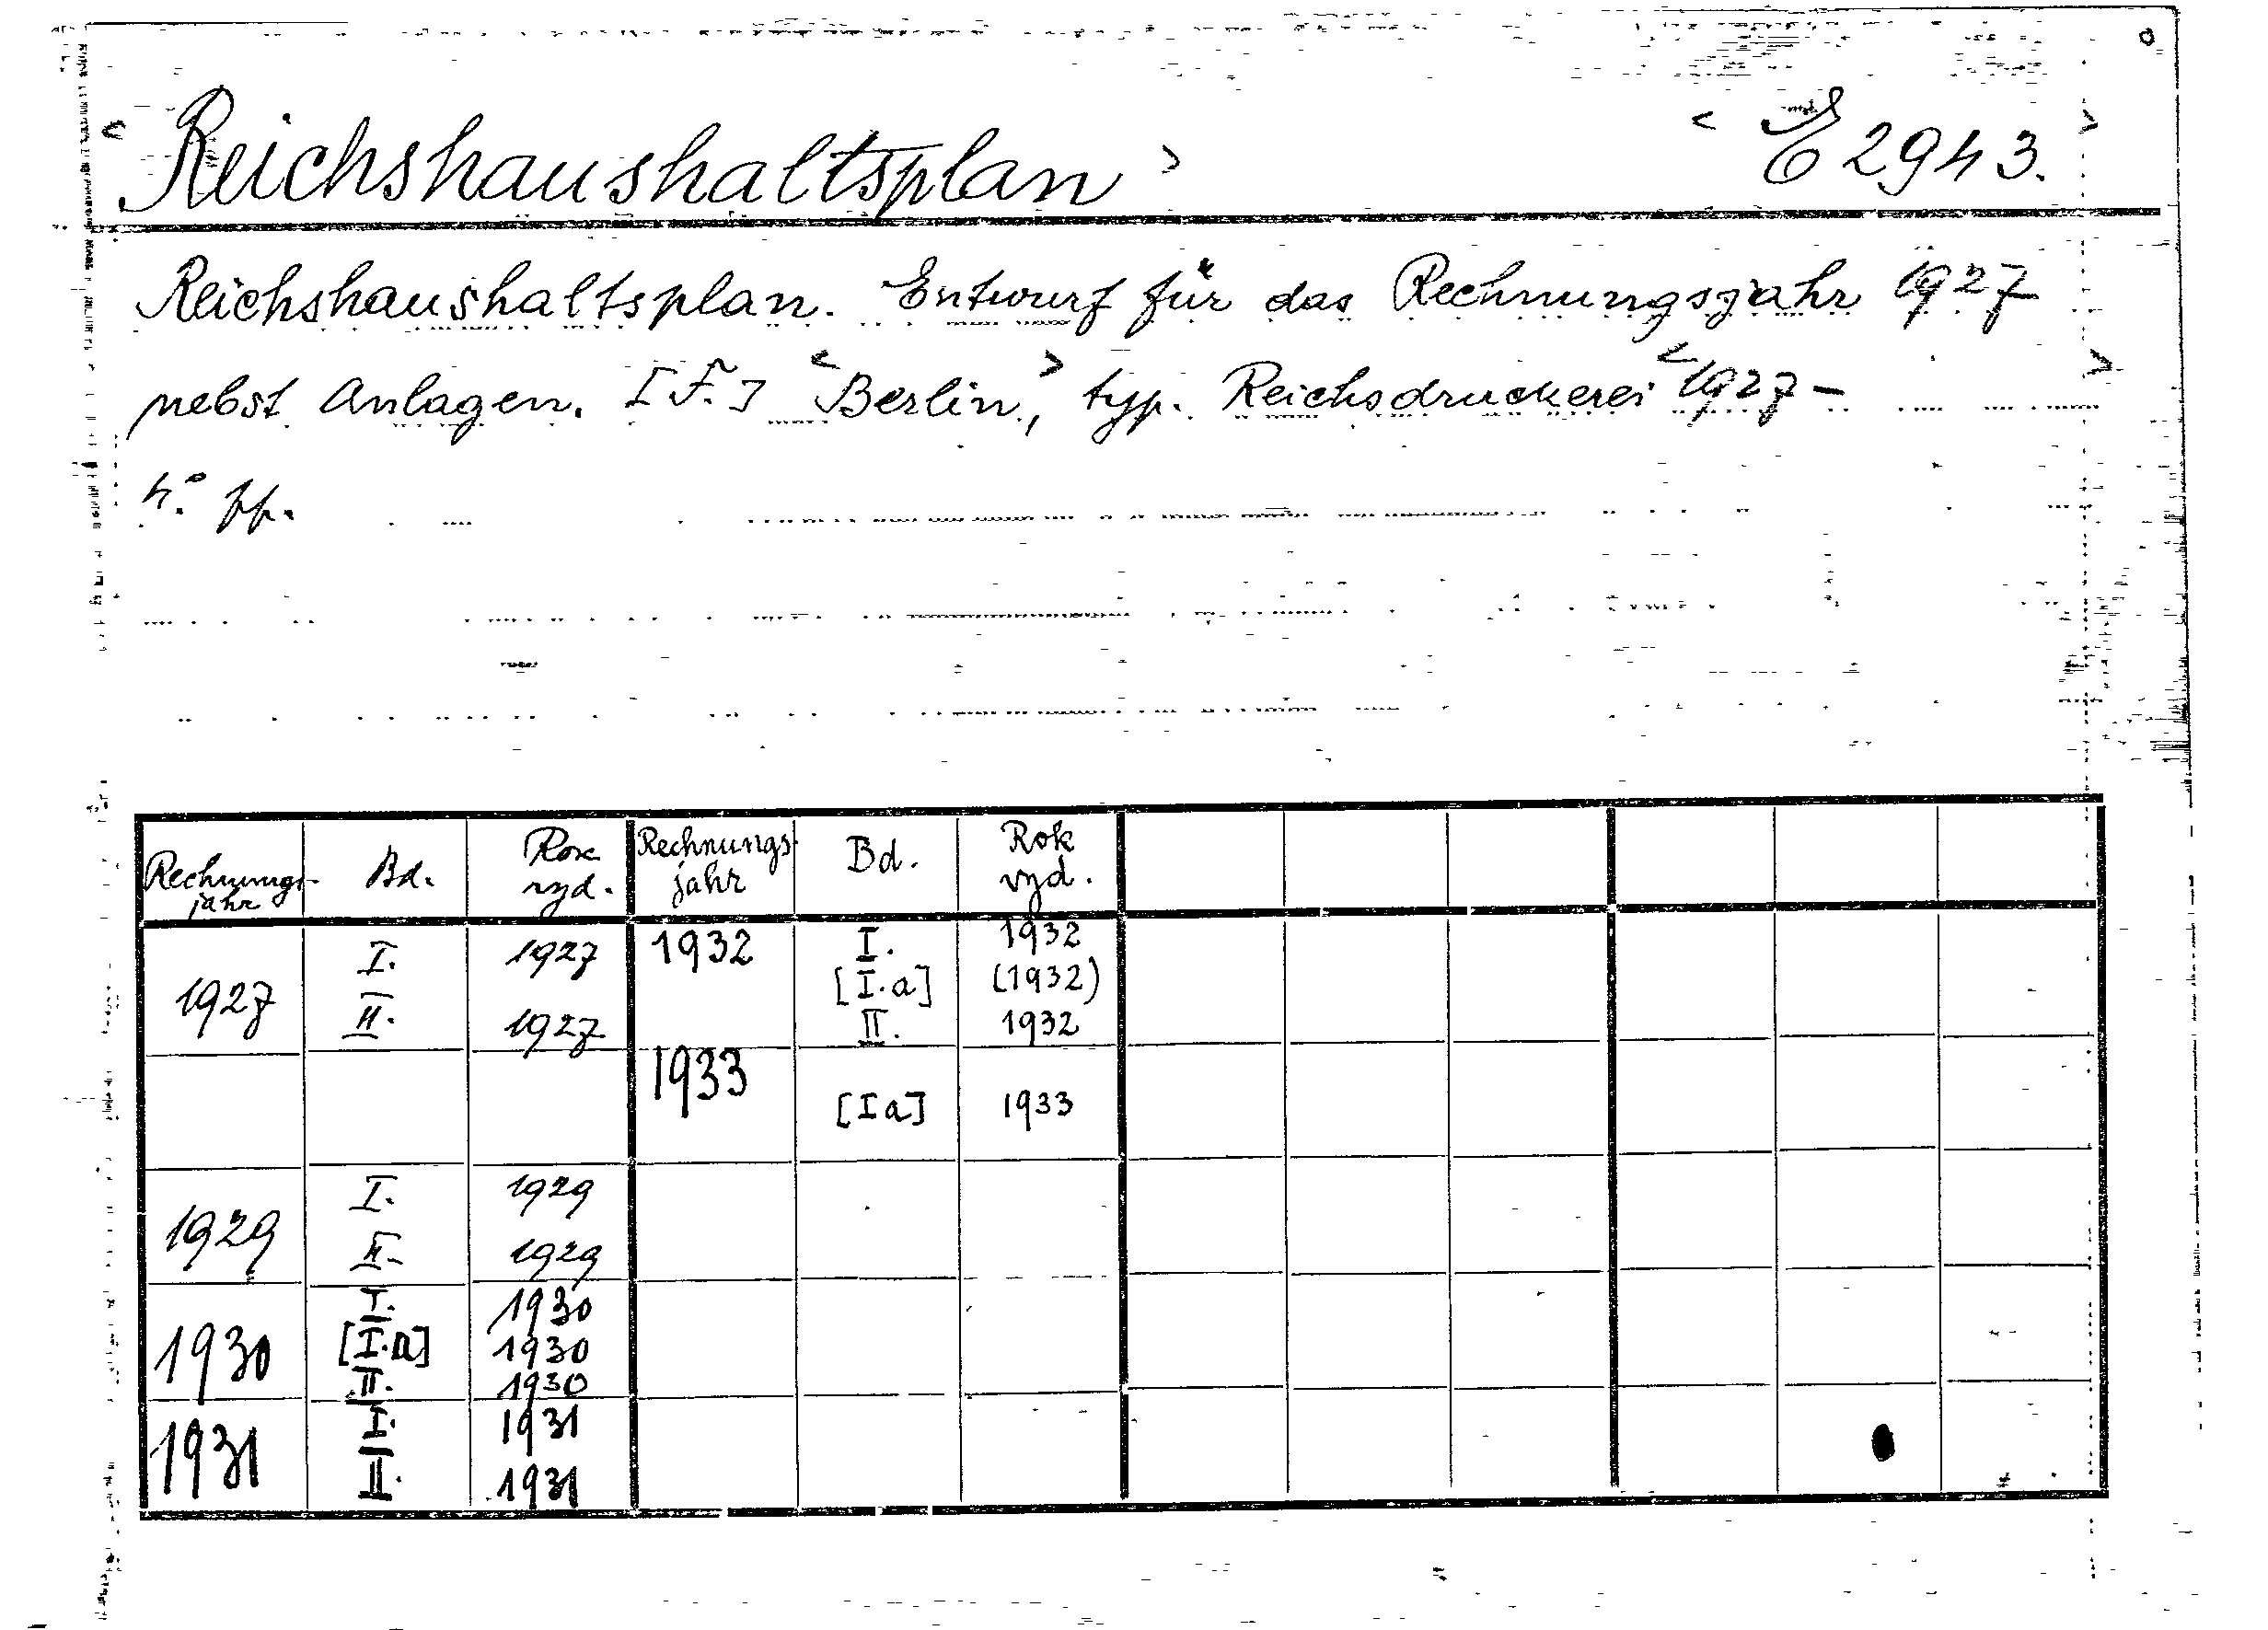 < Reichshaushaltsplan > < E 2943. >
Reichshaushaltsplan. Entwurf für das Rechnungsjahr 1927
nebst Anlagen. [F.] <Berlin>, typ. Reichsdruckerei <1927- >
4.° pp.
Rechnungs- jahr Bd. Rok vyd. Rechnungs- jahr Bd. Rok vyd.
1927 I. 1927 1932 I. 1932
[I.a] (1932)
II. 1927 II. 1932
1933 [Ia] 1933
1929 I. 1929
II. 1929
1930 I. 1930
[I.a] 1930
II. 1930
1931 I. 1931
II. 1931